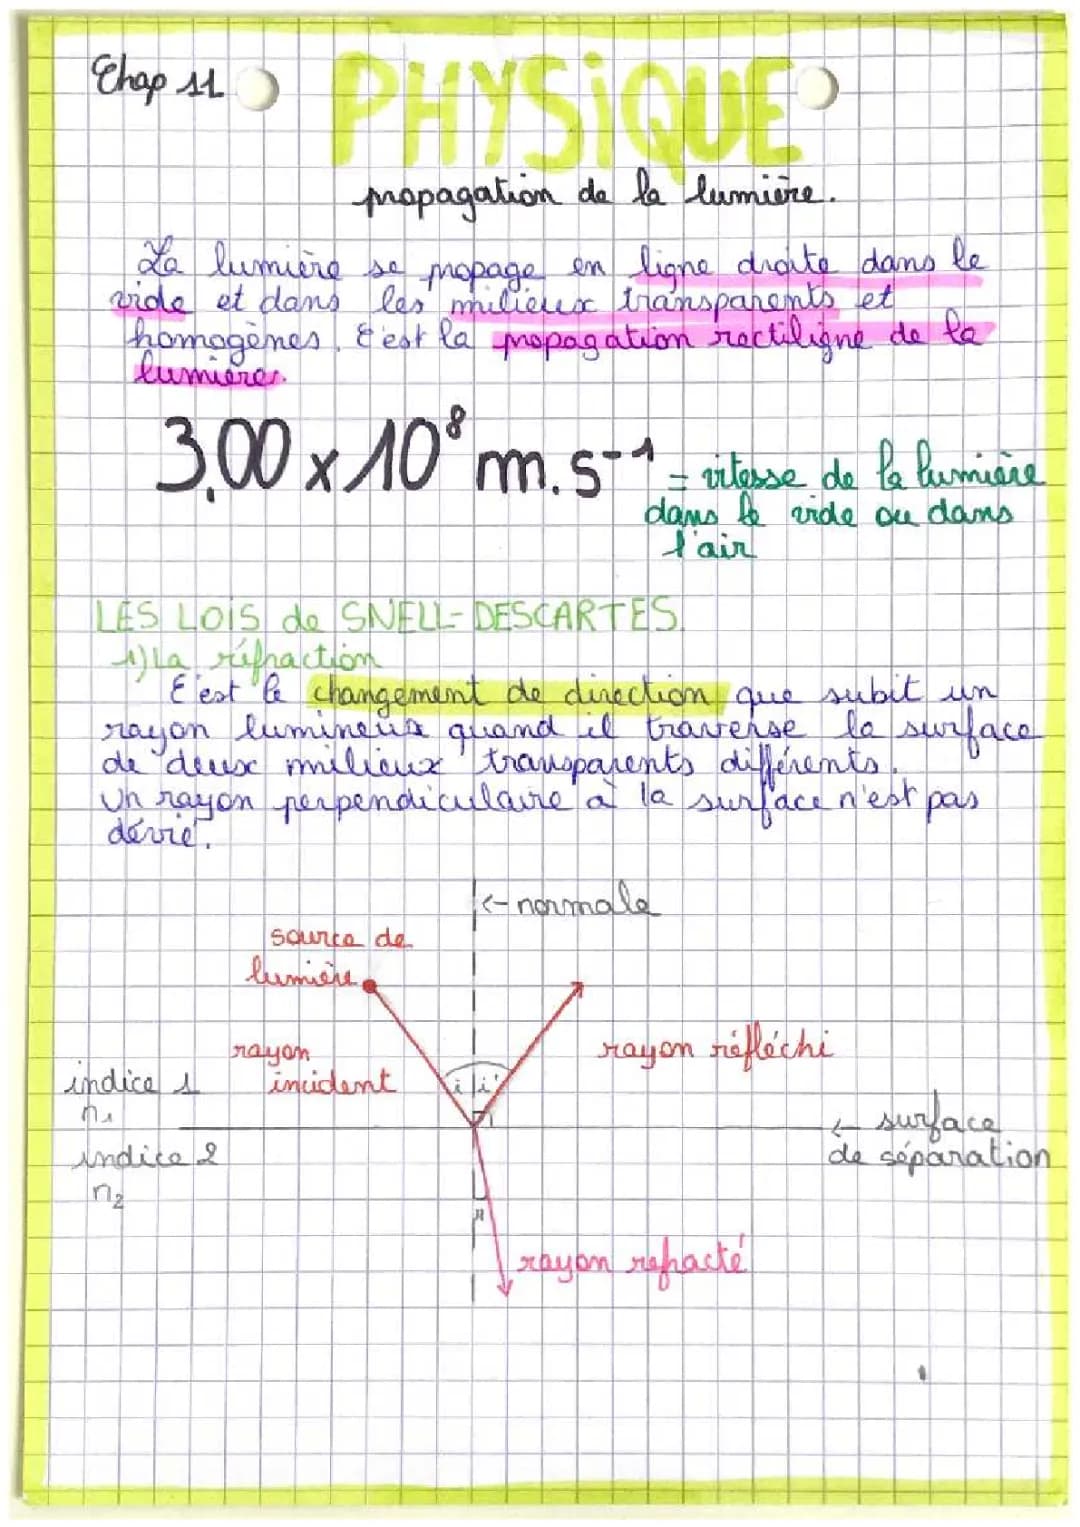 Chap 11
PHYSiQUE
propagation de la lumière.
La lumière se propage en ligne droite dans le
vide et dans les milieux transparents et
homogènes. C'est la propagation rectiligne de la
lumière.
3,00 x 10⁸ m.s⁻¹ = vitesse de la lumière
dans le vide ou dans
l'air
LES LOiS de SNELL-DESCARTES.
1) La réfraction
C'est le changement de direction que subit un
rayon lumineux quand il traverse la surface
de deux milieux transparents différents.
Un rayon perpendiculaire à la surface n'est pas
dévié.
<- normale
source de
lumière
rayon
incident
rayon réfléchi
i i'
indice 1
n₁
<- surface
de séparation
indice 2
n₂
r
rayon refracté